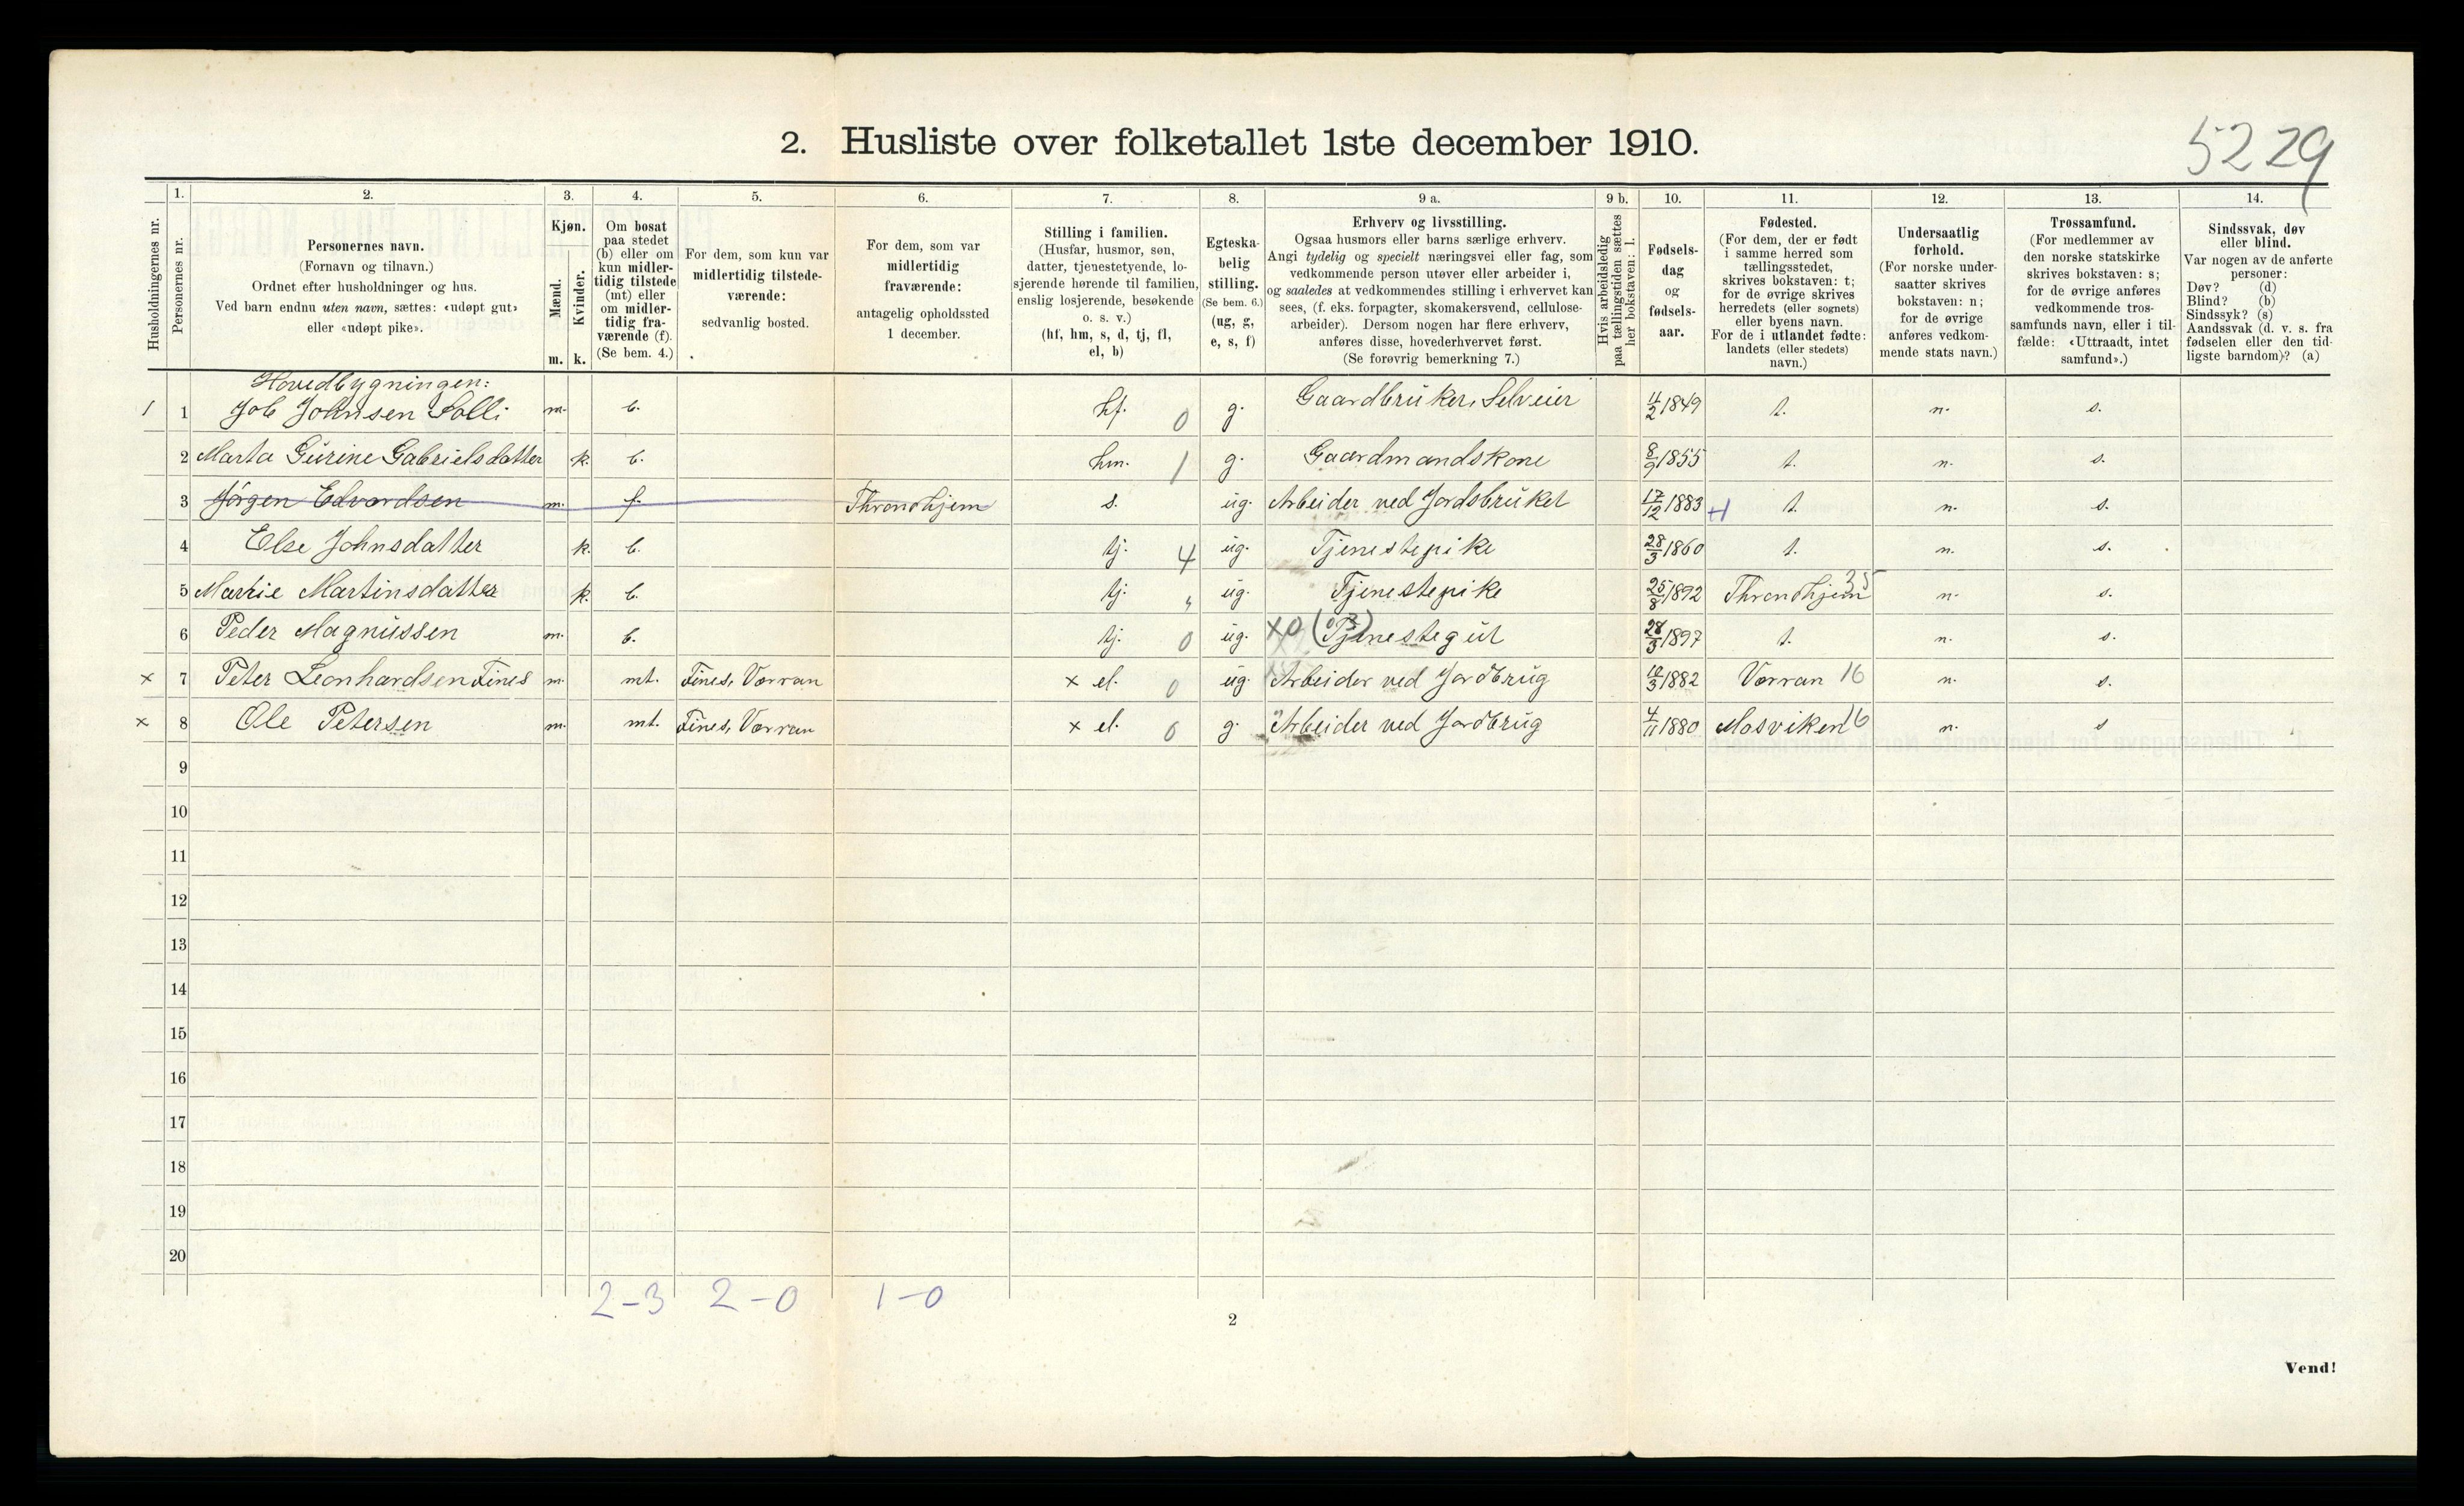 5229
2. Husliste over folketallet 1ste december 1910.
Husholdningernes nr.
1.
Personernes nr.
2.
Personernes navn.
(Fornavn og tilnavn.)
Ordnet efter husholdninger og hus.
Ved barn endnu uten navn, sættes: «udøpt gut»
eller «udøpt pike».
3.
Kjøn.
Mænd.
Kvinder.
m. k.
4.
Om bosat
paa stedet
(b) eller om
kun midler-
tidig tilstede
(mt) eller
om midler-
tidig fra-
værende (f).
(Se bem. 4.)
5.
For dem, som kun var
midlertidig tilstede-
værende:
sedvanlig bosted.
6.
For dem, som var
midlertidig
fraværende:
antagelig opholdssted
1 december.
7.
Stilling i familien.
(Husfar, husmor, søn,
datter, tjenestetyende, lo-
sjerende hørende til familien,
enslig losjerende, besøkende
o. s. v.)
(hf, hm, s, d, tj, fl,
el, b)
8.
Egteska-
belig
stilling.
(Se bem. 6.)
(ug, g,
e, s, f)
9 a.
Erhverv og livsstilling.
Ogsaa husmors eller barns særlige erhverv.
Angi tydelig og specielt næringsvei eller fag, som
vedkommende person utøver eller arbeider i,
og saaledes at vedkommendes stilling i erhvervet kan
sees, (f. eks. forpagter, skomakersvend, cellulose-
arbeider). Dersom nogen har flere erhverv,
anføres disse, hovederhvervet først.
(Se forøvrig bemerkning 7.)
9 b.
Hvis arbeidsledig
paa tællingstiden sættes
her bokstaven: l.
10.
Fødsels-
dag
og
fødsels-
aar.
11.
Fødested.
(For dem, der er født
i samme herred som
tællingsstedet,
skrives bokstaven: t;
for de øvrige skrives
herredets (eller sognets)
eller byens navn.
For de i utlandet fødte:
landets (eller stedets)
navn.)
12.
Undersaatlig
forhold.
(For norske under-
saatter skrives
bokstaven: n;
for de øvrige
anføres vedkom-
mende stats navn.)
13.
Trossamfund.
(For medlemmer av
den norske statskirke
skrives bokstaven: s;
for de øvrige anføres
vedkommende tros-
samfunds navn, eller i til-
fælde: «Uttraadt, intet
samfund».)
14.
Sindssvak, døv
eller blind.
Var nogen av de anførte
personer:
Døv? (d)
Blind? (b)
Sindssyk? (s)
Aandssvak (d. v. s. fra
fødselen eller den tid-
ligste barndom)? (a)
Hovedbygningen:
1 1 Job Johnsen Solli m. b. hf. 0 g. Gaardbruker, Selveier 11/2 1849 t. n. s.
2 Marta Gurine Gabrielsdatter k. b. hm. 1 g. Gaardmandskone 8/9 1855 t. n. s.
3 Jörgen Edvardsen m. f. Throndhjem s. ug. Arbeider ved Jordsbruket 17/12 1883 t. n. s.
4 Else Johnsdatter k. b. tj. 4 ug. Tjenestepike 28/3 1860 t. n. s.
5 Marie Martinsdatter k. b. tj. " ug. Tjenestepike 25/8 1892 Throndhjem 35 n. s.
6 Peder Magnussen m. b. tj. 0 ug. XO Tjenestegut 28/3 1897 t. n. s.
x 7 Peter Leonhardsen Fines m. mt. Fines, Vorran x el. 0 ug. Arbeider ved Jordbrug 12/3 1882 Vorran 16 n. s.
x 8 Ole Petersen m. mt. Fines, Vorran x el. 0 g. Arbeider ved Jordbrug 4/11 1880 Mosviken 16 n. s
9
10
11
12
13
14
15
16
17
18
19
20
2-3 2-0 1-0
2
Vend!